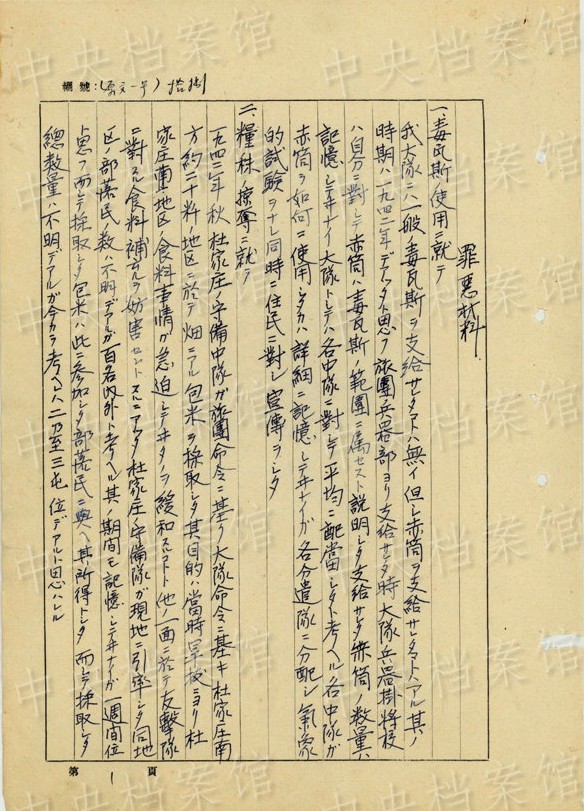 編號：
罪惡材料
一、毒瓦斯ノ使用ニ就テ
我大隊ニハ一般ノ毒瓦斯ヲ支給サレタコトハ無イ但シ赤筒ヲ支給サレタコトハアル其ノ
時期ハ一九四二年デアッタト思フ旅團兵器部ヨリ支給サレタ時大隊兵器掛將校
ハ自分ニ對シテ赤筒ハ毒瓦斯ノ範圍ニ属セスト説明シタ支給サレタ赤筒ノ数量ハ
記憶シテヰナイ大隊トシテハ各中隊ニ對シテ平均ニ配當シタト考ヘル各中隊ガ
赤筒ヲ如何ニ使用シタカハ詳細ニ記憶シテヰナイガ各分遣隊ニ分配シ氣象
的試驗ヲナシ同時ニ住民ニ對シ宣傳ヲシタ
二、糧秣掠奪ニ就テ
一九四二年秋杜家庄ノ守備中隊ガ旅團命令ニ基ク大隊命令ニ基キ杜家庄南
方約二十粁ノ地区ニ於テ畑ニアル包米ヲ採取シタ其目的ハ當時旱抜ニヨリ杜
家庄南地区ノ食料事情ガ急迫シテヰタノヲ緩和スルコトト他ノ一面ニ於テ友擊隊
ニ對スル食料補充ヲ妨害セントスルニアッタ杜家庄ノ守備隊ガ現地ニ引率シタ同地
区ノ部落民ノ数ハ不明デアルガ百名内外ト考ヘル其ノ期間モ記憶シテヰナイガ一週間位
ト思フ而シテ採取シタ包米ハ此ニ参加シタ部落民ニ與ヘ其所得トシタ而シテ採取シタ
總数量ハ不明デアルガ今カラ考ヘレハ二乃至三屯位デアルト思ハレル
第 1 頁
中央档案馆